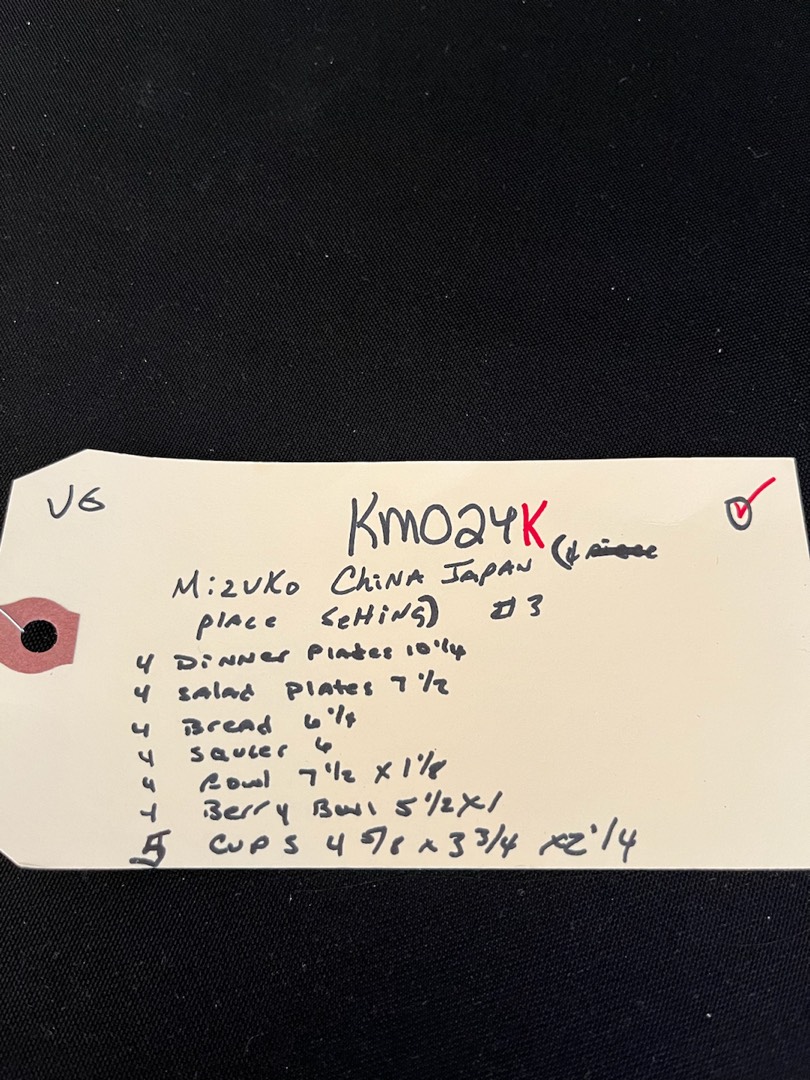 VG
KM024K
Mizuko China Japan (4
place setting) #3
4 Dinner Plates 10 1/4
4 Salad Plates 7 1/2
4 Bread 6 1/4
4 Saucer 6
4 Bowl 7 1/2 x 1 1/8
4 Berry Bowl 5 1/2 x 1
Cups 4 5/8 x 3 3/4 x 2 1/4